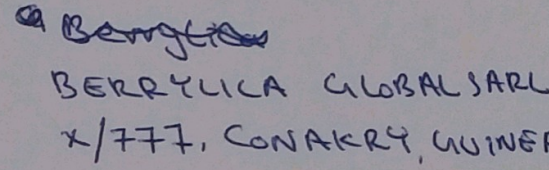 BERRYLICA GLOBAL SARL
X/777, CONAKRY, GUINEA